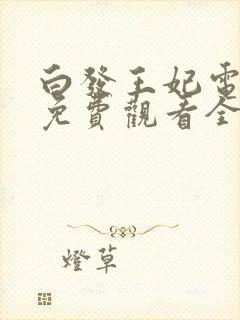 白發王妃電
免費觀看全
燈草